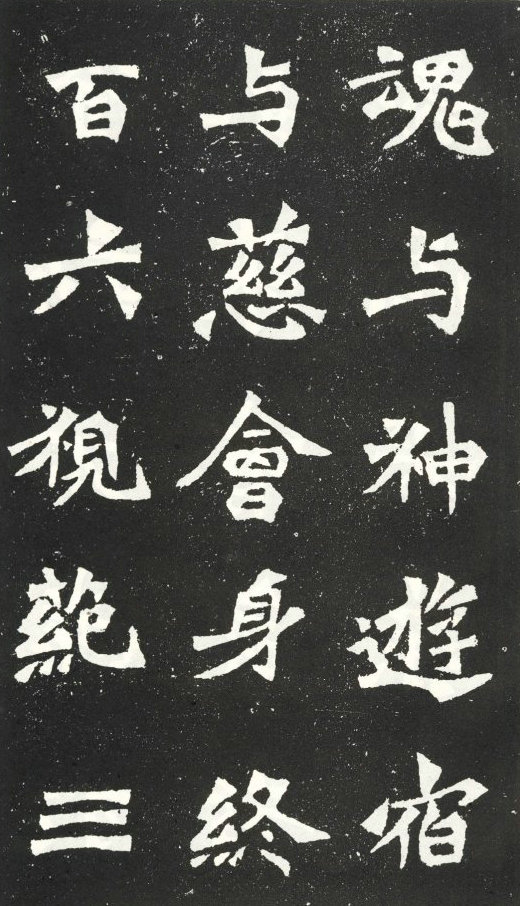 魂与神遊宿
与慈會身終
百六視蕝三